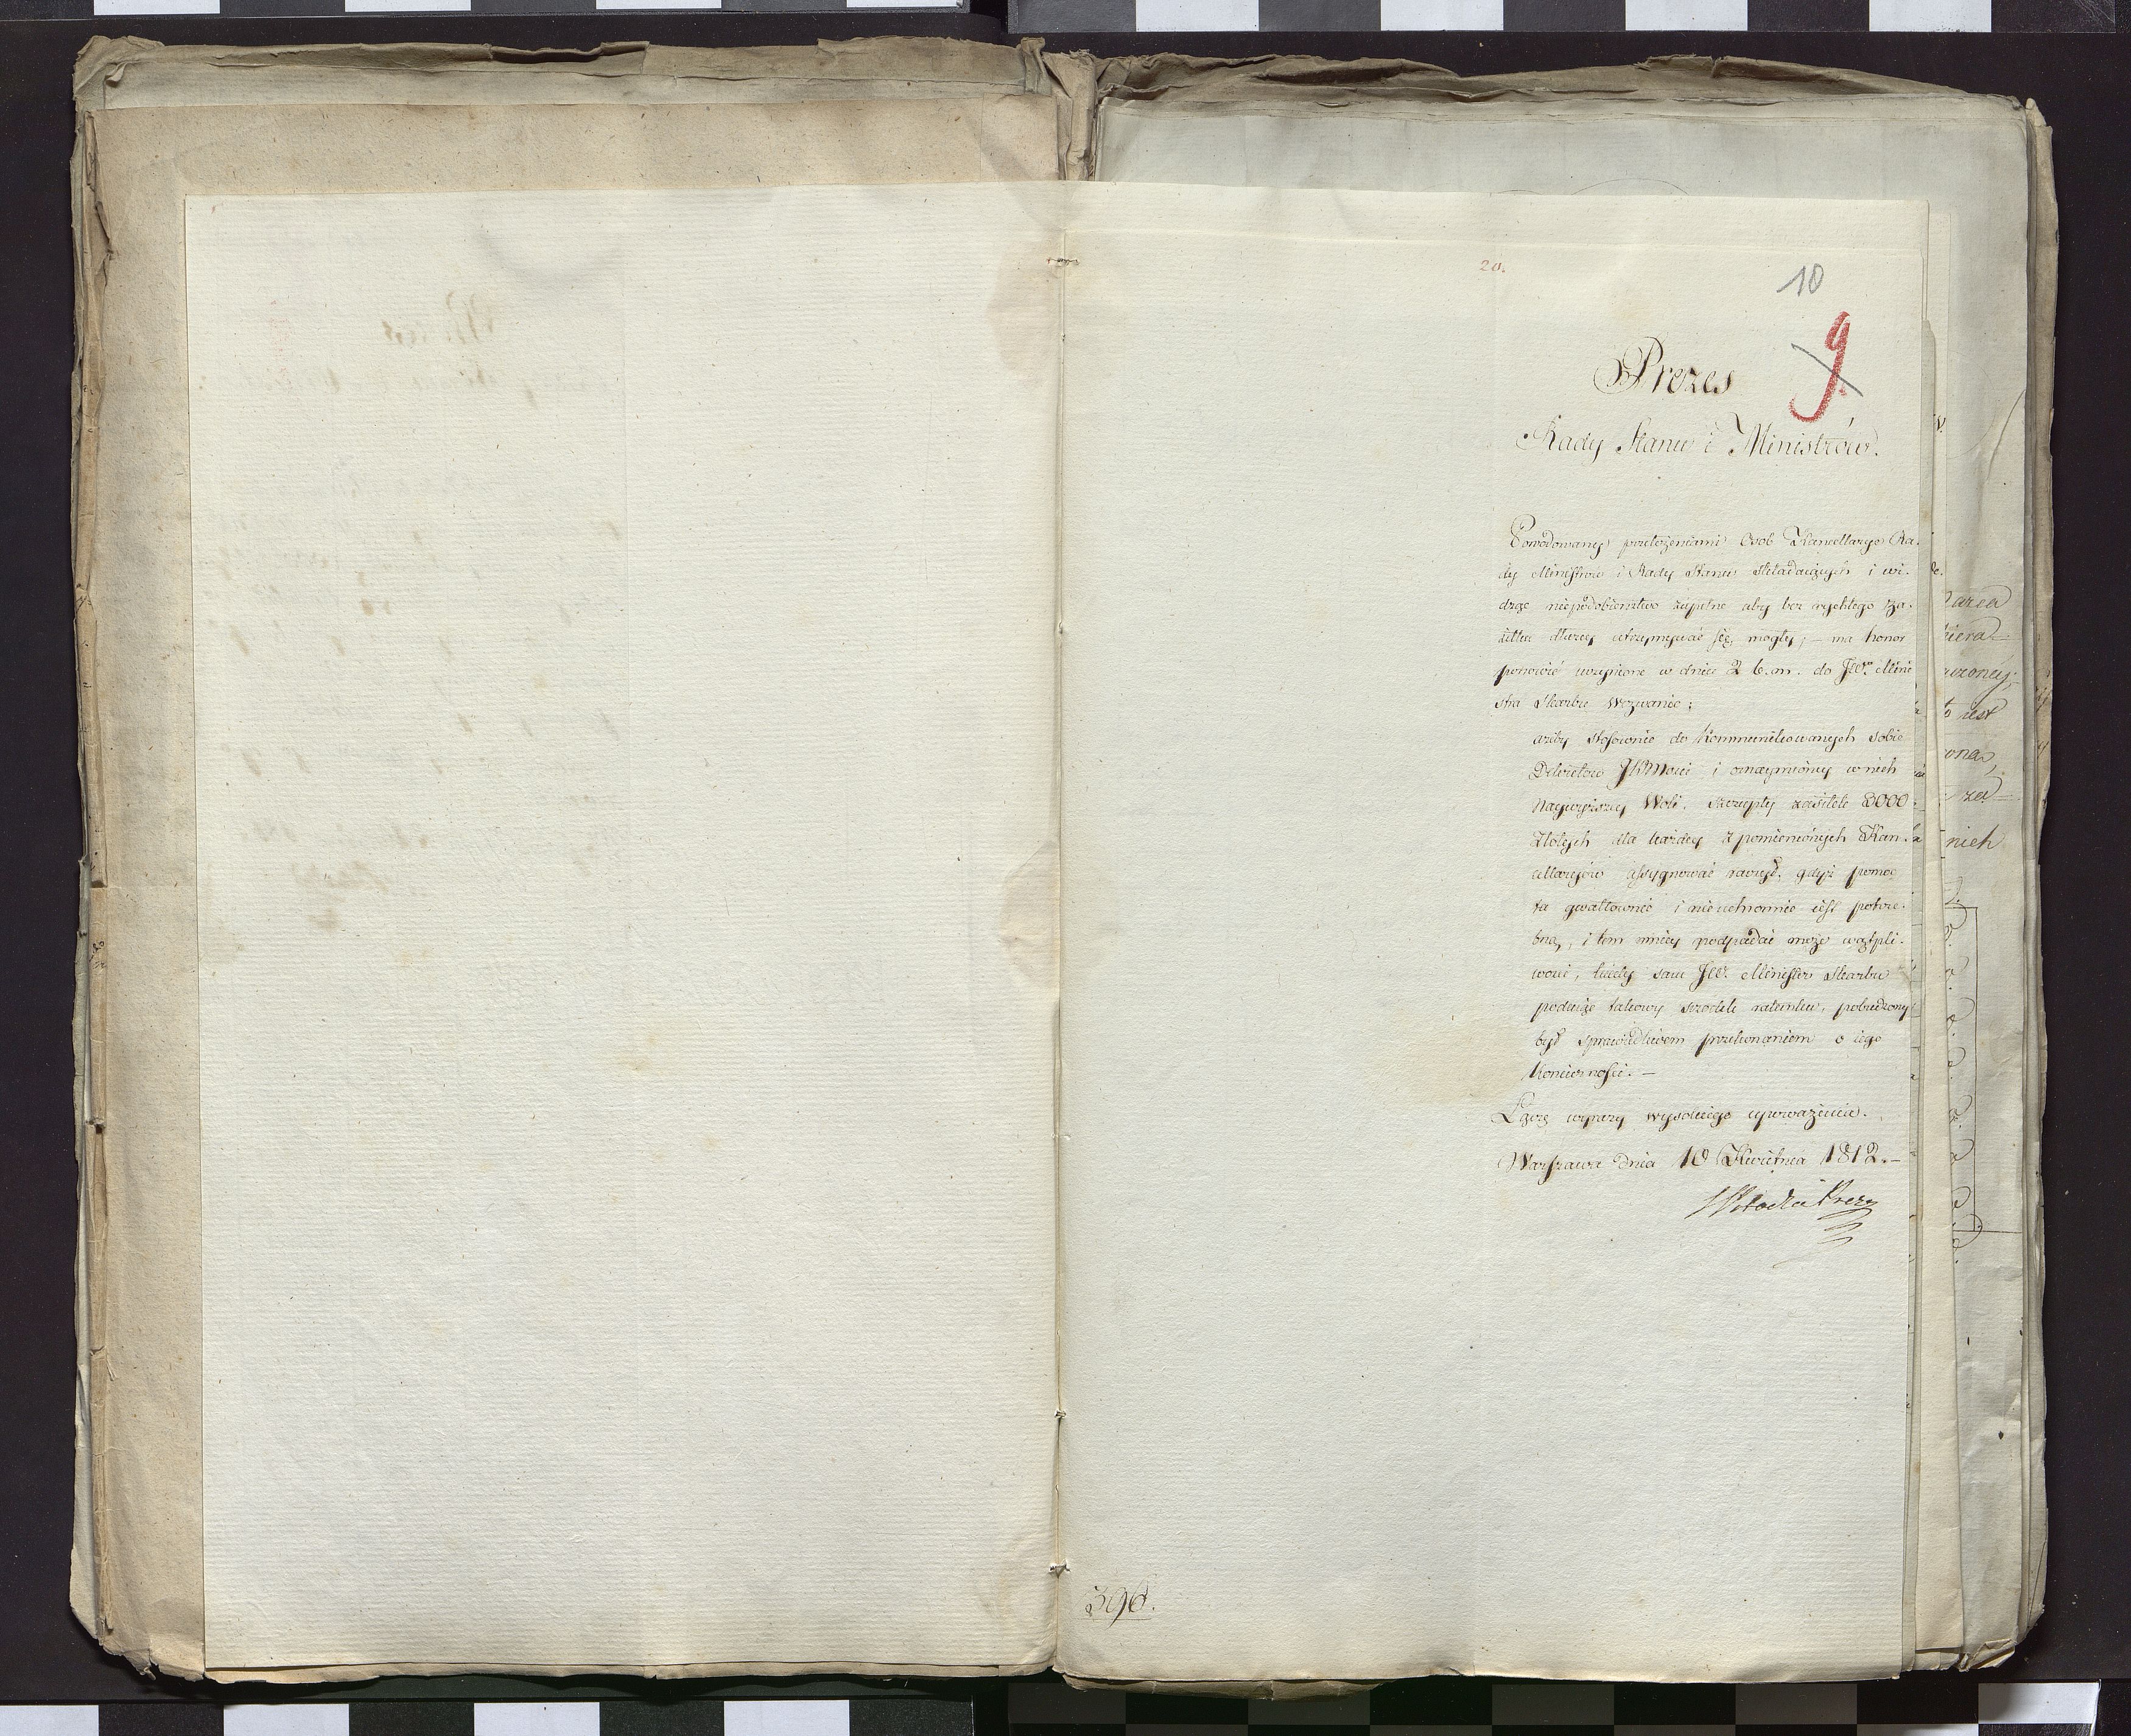 20.
10
9
Prezes
Rady Stanu i Ministrów.
Powodowany przełożeniami Osob Kancellarye Ra-
dy Ministrów i Rady Stanu składaiących i wi-
dząc niepodobieństwo zupełne aby bez rychłego za-
siłku dłużey utrzymywać się mogły; – ma honor
ponowić uczynione w dniu 2 b. m. do JW. Mini
stra Skarbu Wezwanie;
ażeby stosownie do Kommunikowanych sobie
Dekretów JKMości i oznaymioney w nich
Naywyższey Woli, szczupły zasiłek 8000
Złotych dla każdey z pomienionych Kan-
cellaryiów assygnować raczył, gdyż pomoc
ta gwałtownie i nieuchronnie iest potrze-
bną, i tem mniey podpadać może wątpli-
wości, kiedy sam JW. Minister Skarbu
podaiąc takowy srodek ratunku, pobudzony
był sprawiedliwem przekonaniem o iego
Konieczności. –
Łączę wyrazy wysokiego upoważenia.
Warszawa dnia 10 Kwietnia 1812. –
SPotocki Prezes
396.
nich